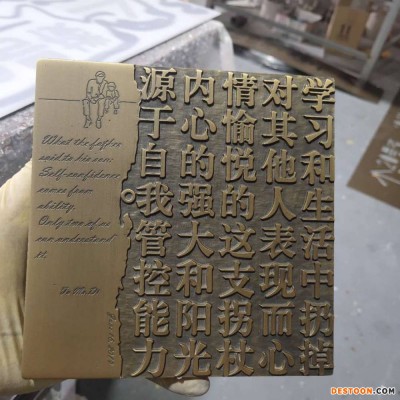 What the father
said to his son:
Self-confidence
comes from
ability.
Only two of us
can understand
it.
学习和生活中扔掉
对其他人表现而心
情愉悦的这支拐杖
内心的强大和阳光
源于自我管控能力
DESTOON.COM